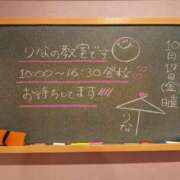 りなの教室です
10:00〜16:30 登校 !!
お待ちしてます!!!!
10月17日(金曜)
りな